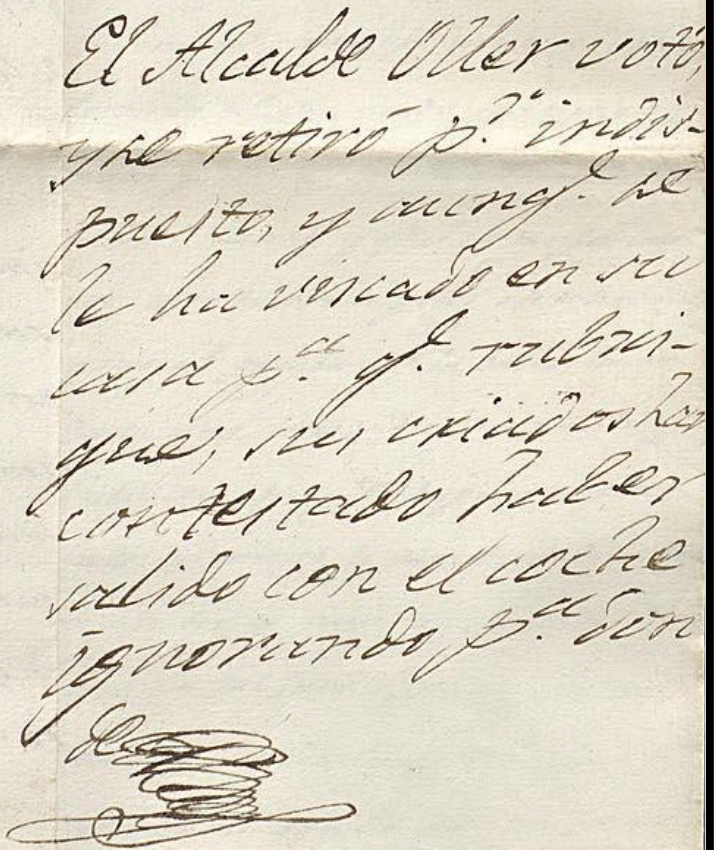 El Alcalde Oller votó,
y se retiró p.r indis-
puesto, y aunq.e se
le ha vuscado en su
casa p.a q.e rubri-
que, sus criados han
contestado haber
salido con el coche
ignorando p.a don
de